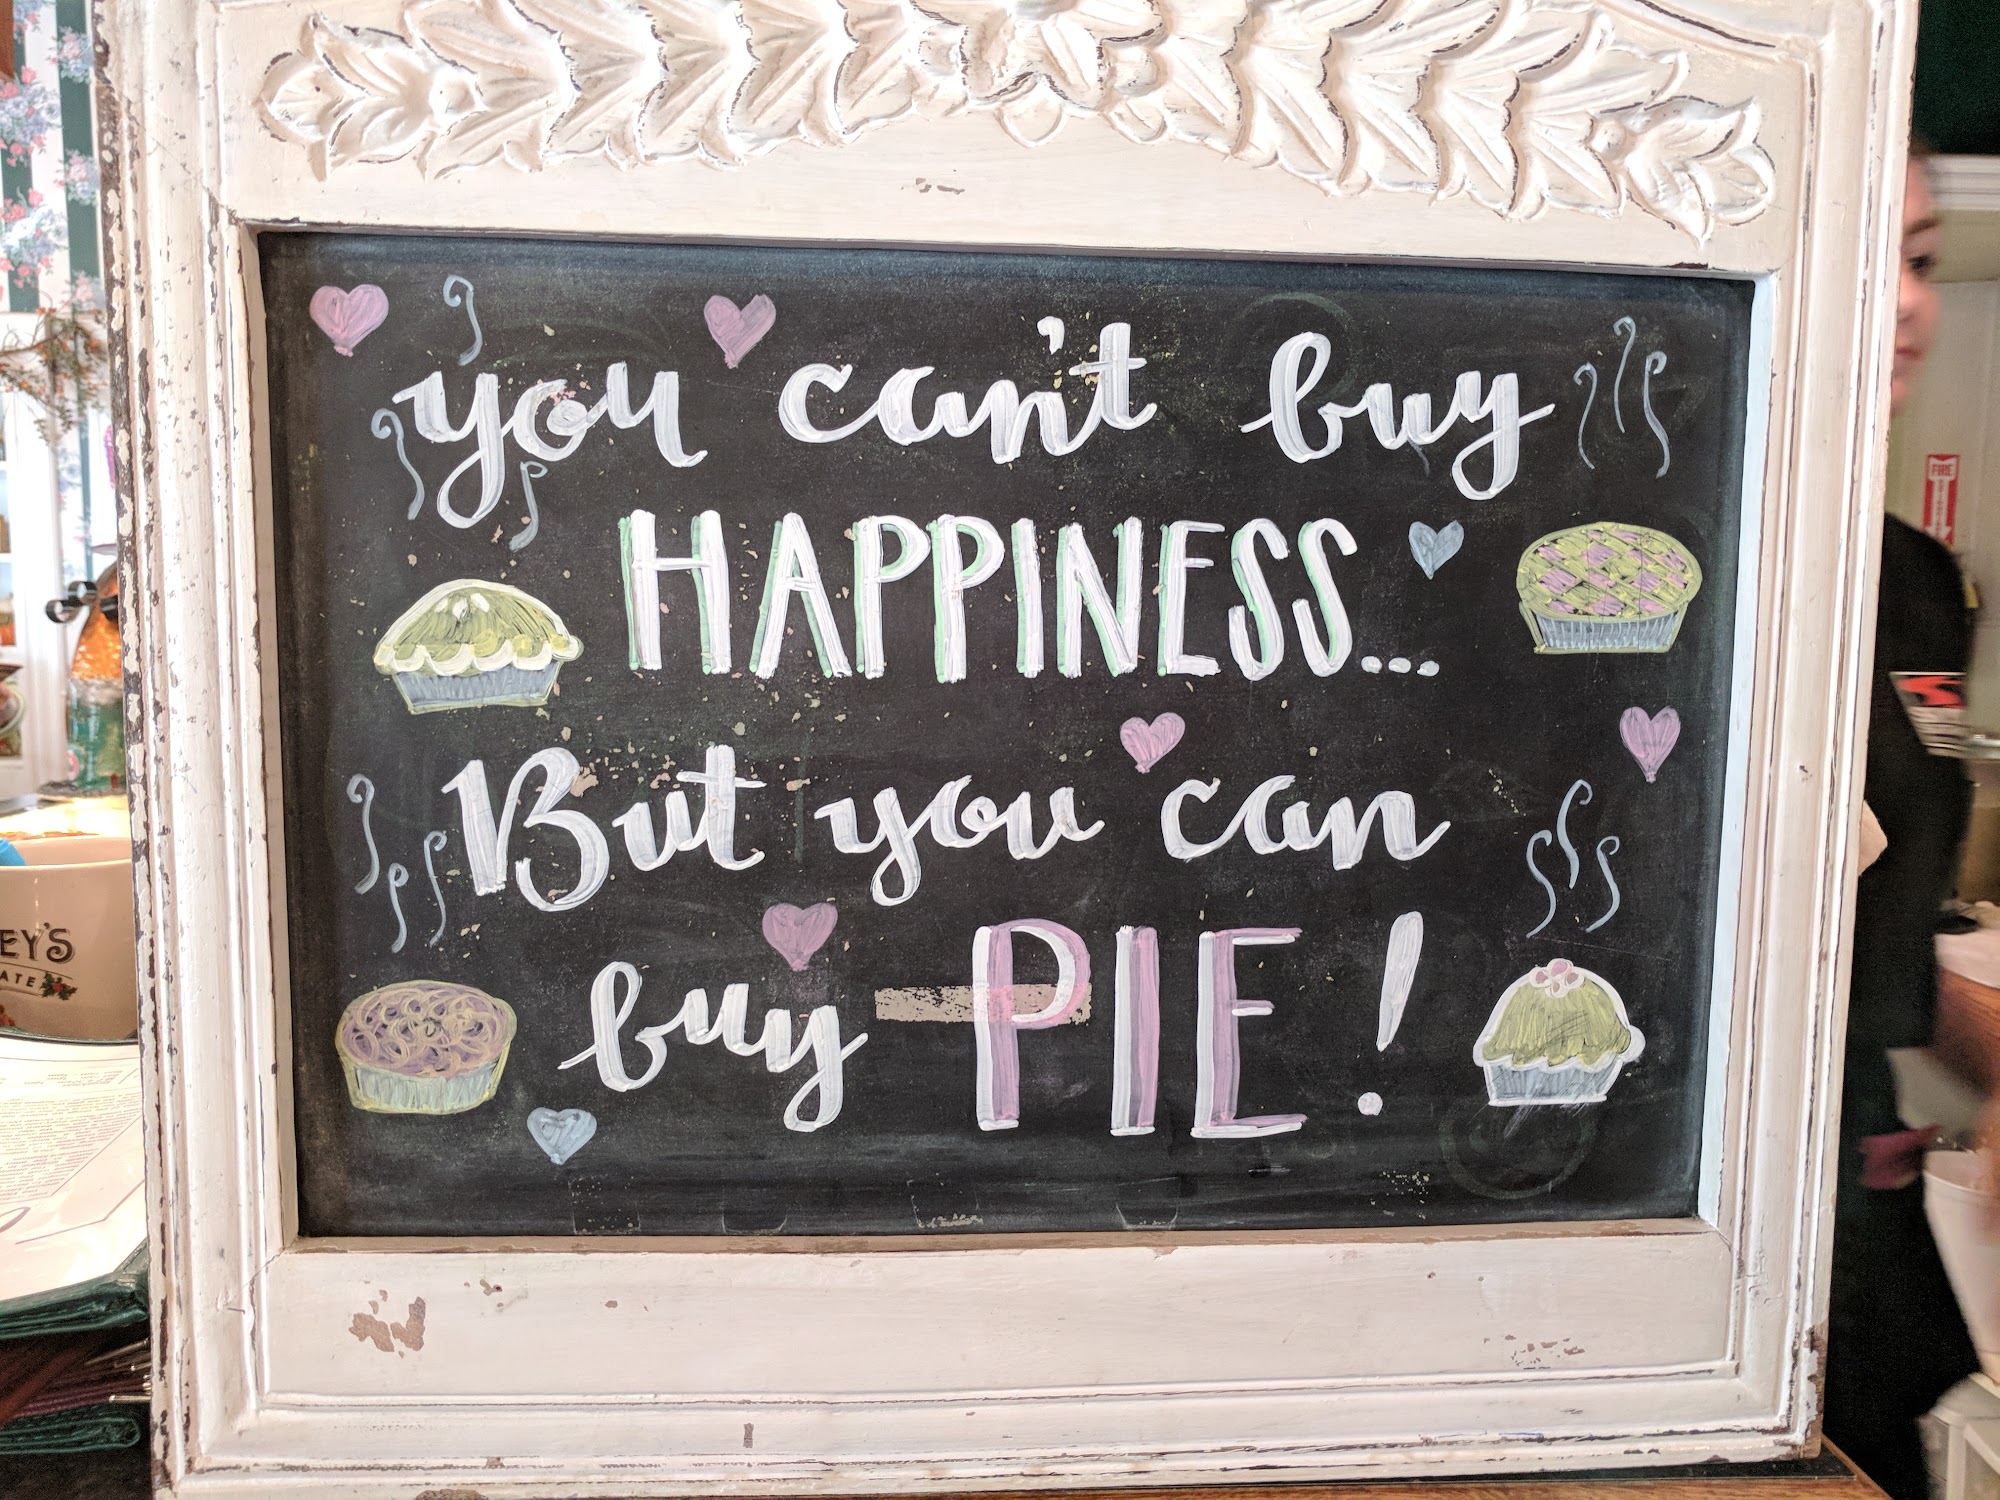 you can't buy
HAPPINESS...
But you can
buy PIE!
EY'S
ATE
FIRE